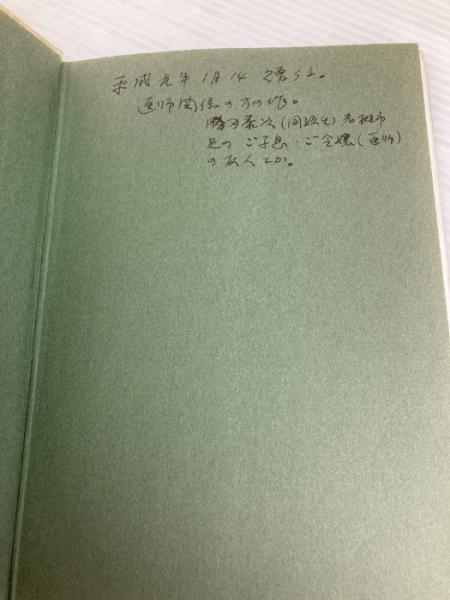 平成元年1月14 受贈す。
医師関係の方の作。
勝田泰次(同級生)君 札市
兄の ご子息・ご令嬢(医師)
の友人とか。